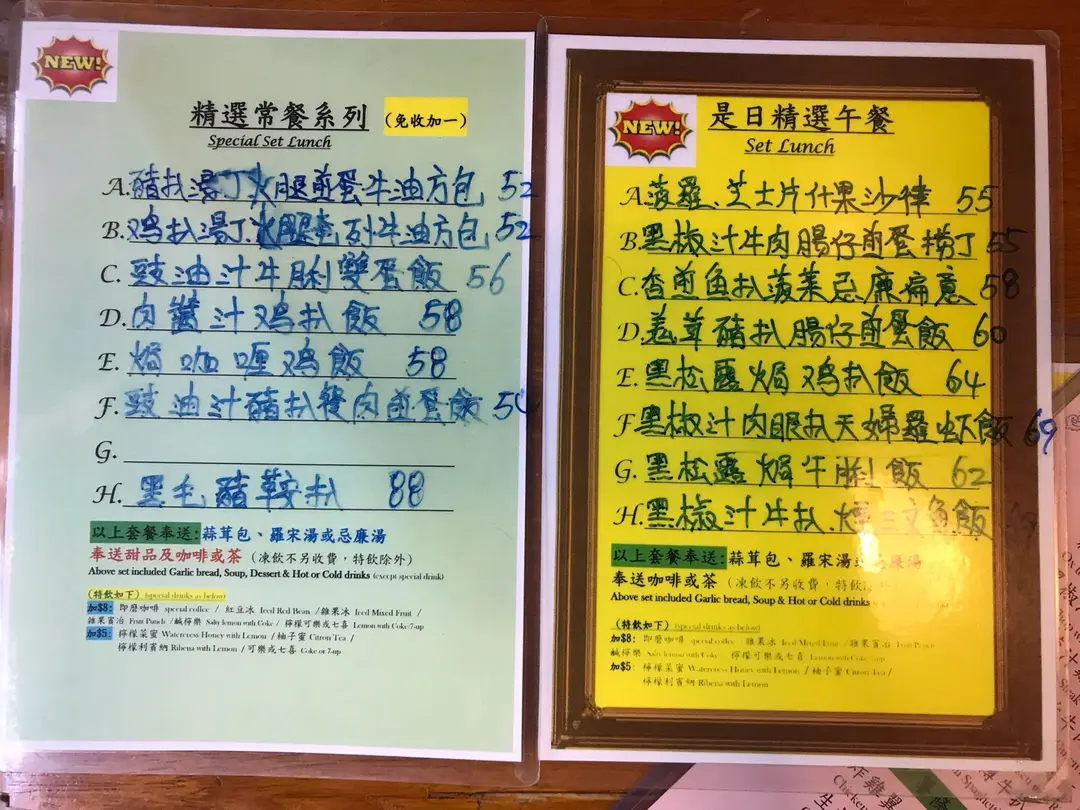 NEW!
精選常餐系列 (免收加一)
Special Set Lunch
A. 豬扒湯丁火腿煎蛋牛油方包 52
B. 鸡扒湯丁火腿奄列牛油方包 52
C. 豉油汁牛脷雙蛋飯 56
D. 肉醬汁鸡扒飯 58
E. 焗咖喱鸡飯 58
F. 豉油汁豬扒餐肉煎蛋飯
G.
H. 黑毛豬鞍扒 88
以上套餐奉送:蒜茸包、羅宋湯或忌廉湯
奉送甜品及咖啡或茶 (凍飲不另收費,特飲除外)
Above set included Garlic bread, Soup, Dessert & Hot or Cold drinks (except special drink)
(特飲如下) (special drinks as below)
加$8: 即磨咖啡 special coffee / 紅豆冰 Iced Red Bean / 雜果冰 Iced Mixed Fruit /
雜果賓治 Fruit Punch / 鹹檸樂 Salty lemon with Coke / 檸檬可樂或七喜 Lemon with Coke/7-up
加$5: 檸檬菜蜜 Watercress Honey with Lemon / 柚子蜜 Citron Tea /
檸檬利賓納 Ribena with Lemon / 可樂或七喜 Coke or 7-up
NEW!
是日精選午餐
Set Lunch
A. 菠羅.芝士片什果沙律 55
B. 黑椒汁牛肉腸仔煎蛋撈丁 55
C. 香煎魚扒菠菜忌廉扁意 58
D. 羗茸豬扒腸仔煎蛋飯 60
E. 黑松露焗鸡扒飯 64
F. 黑椒汁肉眼扒天婦羅虾飯 69
G. 黑松露焗牛脷飯 62
H. 黑椒汁牛扒.煙三文魚飯
以上套餐奉送:蒜茸包、羅宋湯或忌廉湯
奉送咖啡或茶 (凍飲不另收費,特飲除
Above set included Garlic bread, Soup & Hot or Cold drinks
(特飲如下) (special drinks as below)
加$8: 即磨咖啡 special coffee 雜果冰 Iced Mixed Fruit / 雜果賓治 Fruit Punch
鹹檸樂 Salty lemon with Coke 檸檬可樂或七喜 Lemon with Coke
加$5: 檸檬菜蜜 Watercress Honey with Lemon / 柚子蜜 Citron Tea /
檸檬利賓納 Ribena with Lemon
炸雞翼
Chicken